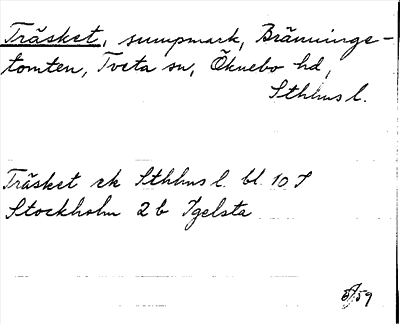 Träsket, sumpmark, Bränninge-
tomten, Tveta sn, Öknebo hd,
Sthlms l.
Träsket ek Sthlms l. bl. 10 S
Stockholm 2 b Igelsta